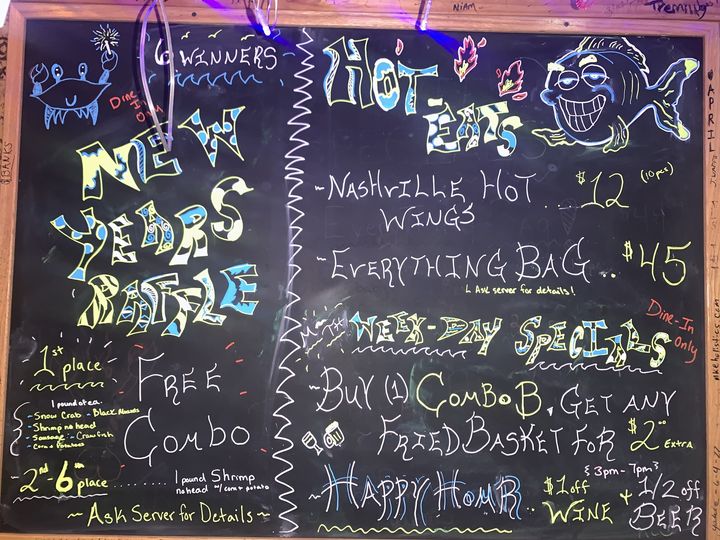 6 WINNERS
Dine-
In
Only
NEW
YEARS
RAFFLE
1st place
FREE
COMBO
1 pound of ea.
- Snow Crab - Black Mussels
- Shrimp no head
- Sausage - Crawfish
- Corn & Potatoes
2nd-6th place ........ 1 pound Shrimp
no head w/ corn & potato
~ Ask Server for Details ~
HOT
EATS
~NASHVILLE HOT
WINGS ... $12 (10pcs)
~EVERYTHING BAG .. $45
Ask server for details!
WEEK-DAY SPECIALS
Dine-In
Only
~BUY (1) COMBO B, GET ANY
FRIED BASKET FOR $2.00 EXTRA
~HAPPY HOUR
{ 3pm - 7pm }
$1 off WINE + 1/2 off BEER
BANKS
APRIL